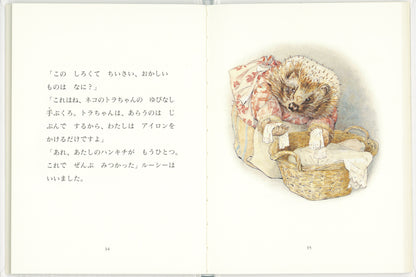 「この　しろくて　ちいさい、おかしい
ものは　なに？」
「これはね、ネコのトラちゃんの　ゆびなし
手ぶくろ。トラちゃんは、あらうのは　じ
ぶんで　するから、わたしは　アイロンを
かけるだけですよ」
「あれ、あたしのハンキチが　もうひとつ。
これで　ぜんぶ　みつかった」ルーシーは
いいました。
54
55